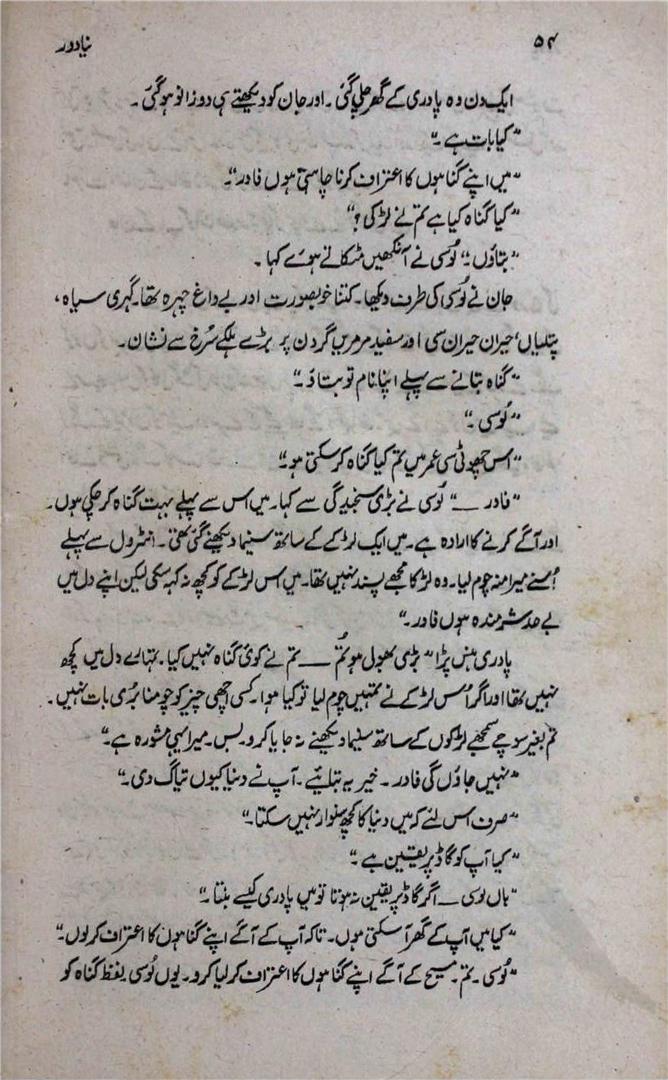 ۵۴
نیا دور
ایک دن وہ پادری کے گھر چلی گئی ۔ اور جان کو دیکھتے ہی دوزانو ہو گئی ۔
"کیا بات ہے ۔"
"میں اپنے گناہوں کا اعتراف کرنا چاہتی ہوں فادر"۔
"کیا گناہ کیا ہے تم نے لڑکی ؟"
"بتاؤں"۔ لُوسی نے آنکھیں مٹکاتے ہوئے کہا ۔
جان نے لُوسی کی طرف دیکھا ۔ کتنا خوبصورت اور بے داغ چہرہ تھا۔ گہری سیاہ ،
پتلیاں، حیران حیران سی اور سفید مرمریں گردن پر بڑے ہلکے سُرخ سے نشان ۔
"گناہ بتانے سے پہلے اپنا نام تو بتاؤ ۔"
"لُوسی ۔"
"اس چھوٹی سی عمر میں تم کیا گناہ کر سکتی ہو"۔
"فادر __" لُوسی نے بڑی سنجیدگی سے کہا۔ میں اس سے پہلے بہت گناہ کر چکی ہوں ۔
اور آگے کرنے کا ارادہ ہے ۔ میں ایک لڑکے کے ساتھ سنیما دیکھنے گئی تھی ۔ انٹرول سے پہلے
اُسنے میرا منہ چوم لیا۔ وہ لڑکا مجھے پسند نہیں تھا۔ میں اس لڑکے کو کچھ نہ کہہ سکی لیکن اپنے دل میں
بے حد شرمندہ ہوں فادر ۔"
پادری ہنس پڑا "بڑی بھول ہو تُم __ تم نے کوئی گناہ نہیں کیا۔ تمہارے دل میں کچھ
نہیں تھا اور اگر اُس لڑکے نے تمہیں چوم لیا تو کیا ہوا۔ کسی اچھی چیز کو چومنا بُری بات نہیں ۔
تم بغیر سوچے سمجھے لڑکوں کے ساتھ سنیما دیکھنے نہ جایا کرو۔ بس۔ میرا یہی مشورہ ہے۔"
"نہیں جاؤں گی فادر ۔ خیر یہ بتائیے ۔ آپ نے دنیا کیوں تیاگ دی ۔"
"صرف اس لئے کہ میں دنیا کا کچھ سنوار نہیں سکتا۔"
"کیا آپ کو گاڈ پر یقین ہے ۔"
"ہاں لوسی __ اگر گاڈ پر یقین نہ ہوتا تو میں پادری کیسے بنتا ۔"
"کیا میں آپ کے گھر آ سکتی ہوں۔ تاکہ آپ کے آگے اپنے گناہوں کا اعتراف کر لوں۔"
"لُوسی ۔ تم ۔ مسیح کے آگے اپنے گناہوں کا اعتراف کر لیا کرو ۔ یوں لُوسی لفظ گناہ کو